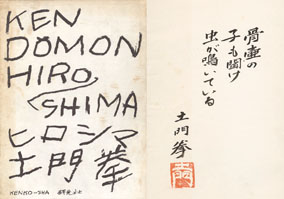 KEN
DOMON
HIRO
SHIMA
ヒロシマ
土門拳
KENKO-SHA 研光社
骨壷の
子も聞け
虫が鳴いている
土門拳